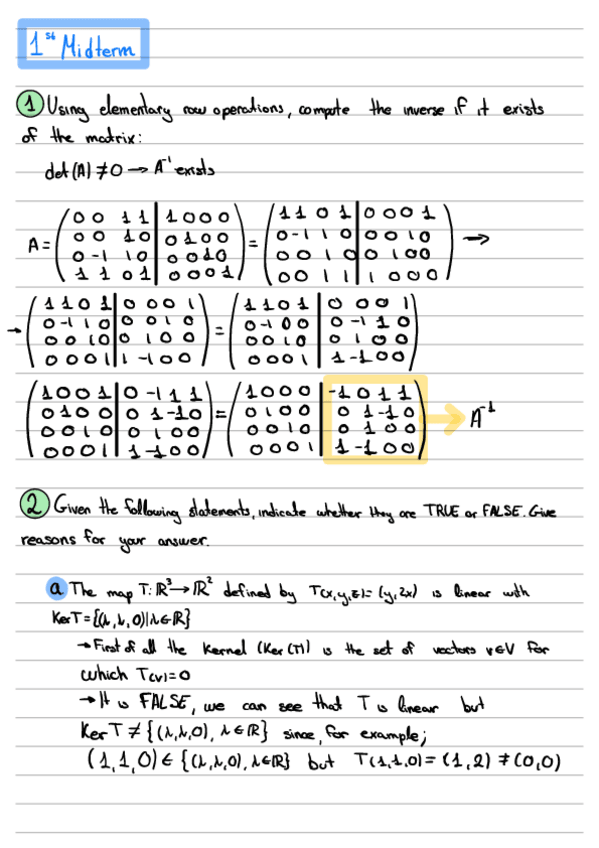 1st Midterm
1 Using elementary row operations, compute the inverse if it exists
of the matrix:
det(A) ≠ 0 → A⁻¹ exists
A = ( 0 0 1 1 | 1 0 0 0
0 0 1 0 | 0 1 0 0
0 -1 1 0 | 0 0 1 0
1 1 0 1 | 0 0 0 1 ) = ( 1 1 0 1 | 0 0 0 1
0 -1 1 0 | 0 0 1 0
0 0 1 0 | 0 1 0 0
0 0 1 1 | 1 0 0 0 ) →
→ ( 1 1 0 1 | 0 0 0 1
0 -1 1 0 | 0 0 1 0
0 0 1 0 | 0 1 0 0
0 0 0 1 | 1 -1 0 0 ) = ( 1 1 0 1 | 0 0 0 1
0 -1 0 0 | 0 -1 1 0
0 0 1 0 | 0 1 0 0
0 0 0 1 | 1 -1 0 0 )
( 1 0 0 1 | 0 -1 1 1
0 1 0 0 | 0 1 -1 0
0 0 1 0 | 0 1 0 0
0 0 0 1 | 1 -1 0 0 ) = ( 1 0 0 0 | -1 0 1 1
0 1 0 0 | 0 1 -1 0
0 0 1 0 | 0 1 0 0
0 0 0 1 | 1 -1 0 0 ) → A⁻¹
2 Given the following statements, indicate whether they are TRUE or FALSE. Give
reasons for your answer.
a The map T: ℝ³→ℝ² defined by T(x,y,z)=(y,2x) is linear with
Ker T = {(λ,λ,0)|λ∈ℝ}
→ First of all the Kernel (Ker(T)) is the set of vectors v∈V for
which T(v)=0
→ It is FALSE, we can see that T is linear but
Ker T ≠ {(λ,λ,0), λ∈ℝ} since, for example;
(1,1,0) ∈ {(λ,λ,0), λ∈ℝ} but T(1,1,0) = (1,2) ≠ (0,0)